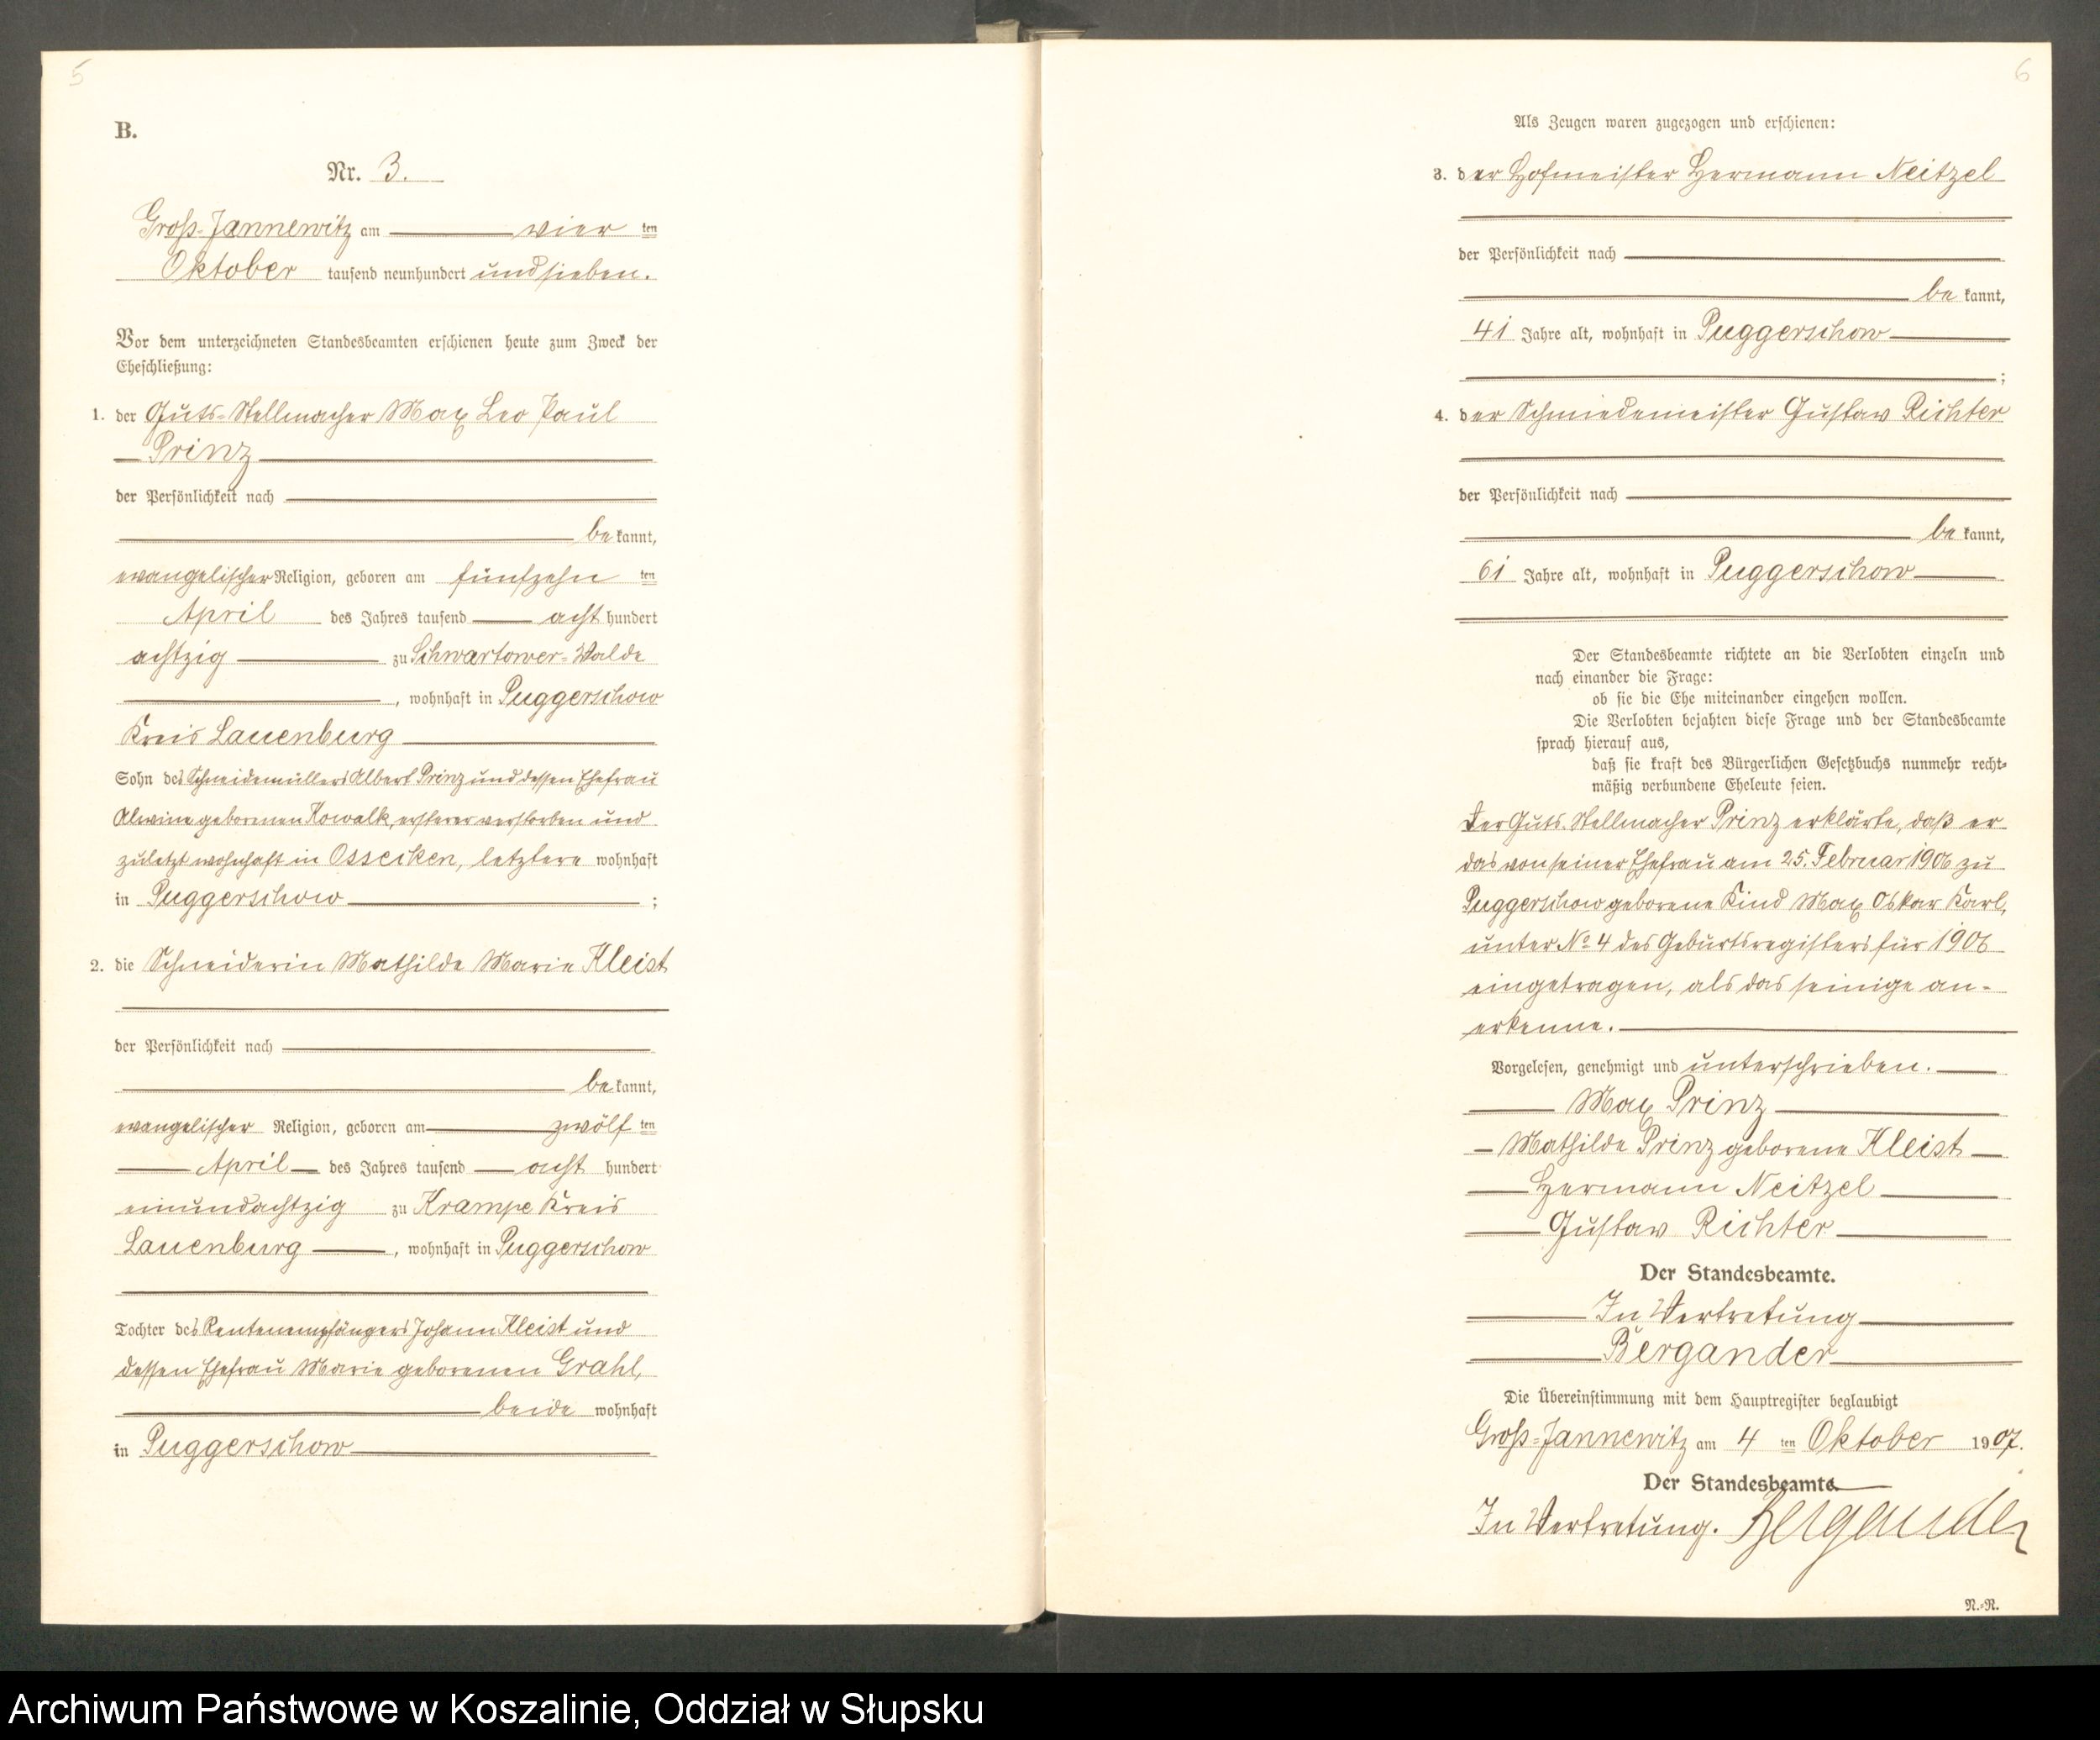 5
B.
Nr. 3.
Groß-Jannewitz am vier ten
Oktober tausend neunhundert und sieben.
Vor dem unterzeichneten Standesbeamten erschienen heute zum Zweck der
Eheschließung:
1. der Guts-Stellmacher Max Leo Paul
Prinz
der Persönlichkeit nach
be kannt,
evangelischer Religion, geboren am fünfzehn ten
April des Jahres tausend acht hundert
achtzig zu Schwartower-Walde
, wohnhaft in Puggerschow
Kreis Lauenburg
Sohn des Schneidemüllers Albert Prinz und dessen Ehefrau
Alwine geborenen Kowalk, ersterer verstorben und
zuletzt wohnhaft in Ossecken, letztere wohnhaft
in Puggerschow ;
2. die Schneiderin Mathilde Marie Kleist
der Persönlichkeit nach
be kannt,
evangelischer Religion, geboren am zwölf ten
April des Jahres tausend acht hundert
einundachtzig zu Krampe Kreis
Lauenburg , wohnhaft in Puggerschow
Tochter des Rentenempfängers Johann Kleist und
dessen Ehefrau Marie geborenen Grahl,
beide wohnhaft
in Puggerschow
6
Als Zeugen waren zugezogen und erschienen:
3. der Hofmeister Hermann Neitzel
der Persönlichkeit nach
be kannt,
41 Jahre alt, wohnhaft in Puggerschow
;
4. der Schmiedemeister Gustav Richter
der Persönlichkeit nach
be kannt,
61 Jahre alt, wohnhaft in Puggerschow
Der Standesbeamte richtete an die Verlobten einzeln und
nach einander die Frage:
ob sie die Ehe miteinander eingehen wollen.
Die Verlobten bejahten diese Frage und der Standesbeamte
sprach hierauf aus,
daß sie kraft des Bürgerlichen Gesetzbuchs nunmehr recht-
mäßig verbundene Eheleute seien.
Der Guts-Stellmacher Prinz erklärte, daß er
das von seiner Ehefrau am 25. Februar 1906 zu
Puggerschow geborene Kind Max Oskar Karl,
unter No 4 des Geburtsregisters für 1906
eingetragen, als das seinige an-
erkenne.
Vorgelesen, genehmigt und unterschrieben.
Max Prinz
Mathilde Prinz geborene Kleist
Hermann Neitzel
Gustav Richter
Der Standesbeamte.
In Vertretung
Bergander
Die Übereinstimmung mit dem Hauptregister beglaubigt
Groß-Jannewitz am 4 ten Oktober 1907.
Der Standesbeamte.
In Vertretung. Bergander
N.-R.
Archiwum Państwowe w Koszalinie, Oddział w Słupsku